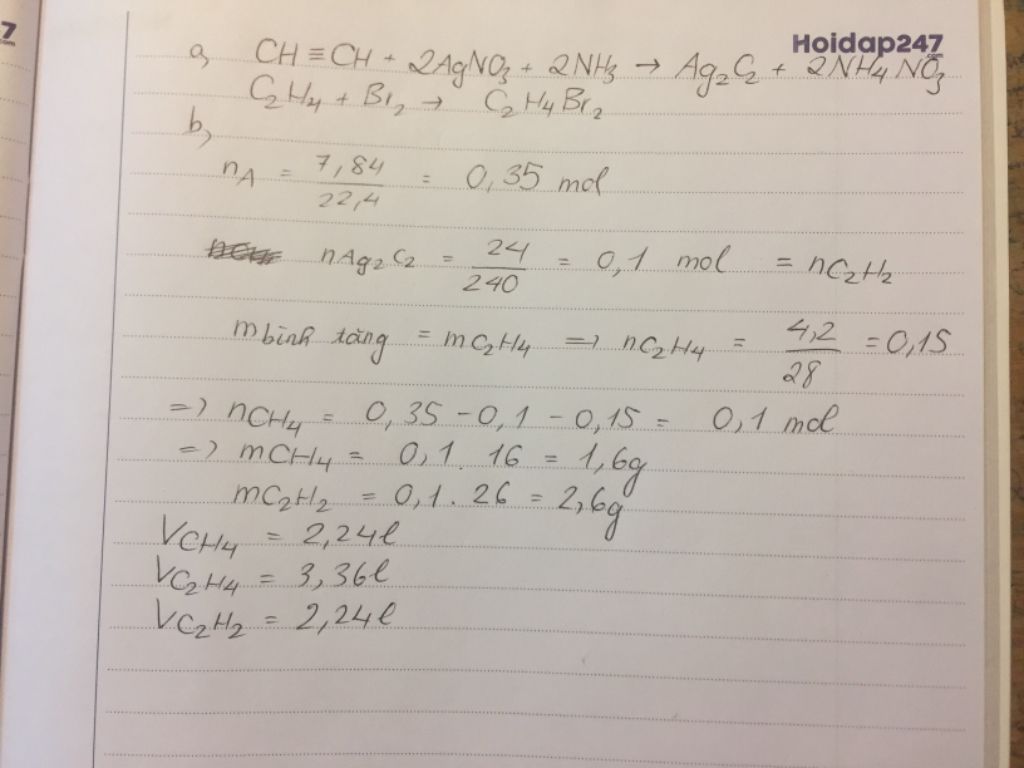 7
.com
Hoidap247
.com
a, CH ≡ CH + 2AgNO₃ + 2NH₃ → Ag₂C₂ + 2NH₄NO₃
C₂H₄ + Br₂ → C₂H₄Br₂
b,
nA = 7,84 / 22,4 = 0,35 mol
nAg₂C₂ = 24 / 240 = 0,1 mol = nC₂H₂
m bình tăng = mC₂H₄ => nC₂H₄ = 4,2 / 28 = 0,15
=> nCH₄ = 0,35 - 0,1 - 0,15 = 0,1 mol
=> mCH₄ = 0,1 . 16 = 1,6g
mC₂H₂ = 0,1 . 26 = 2,6g
VCH₄ = 2,24l
VC₂H₄ = 3,36l
VC₂H₂ = 2,24l